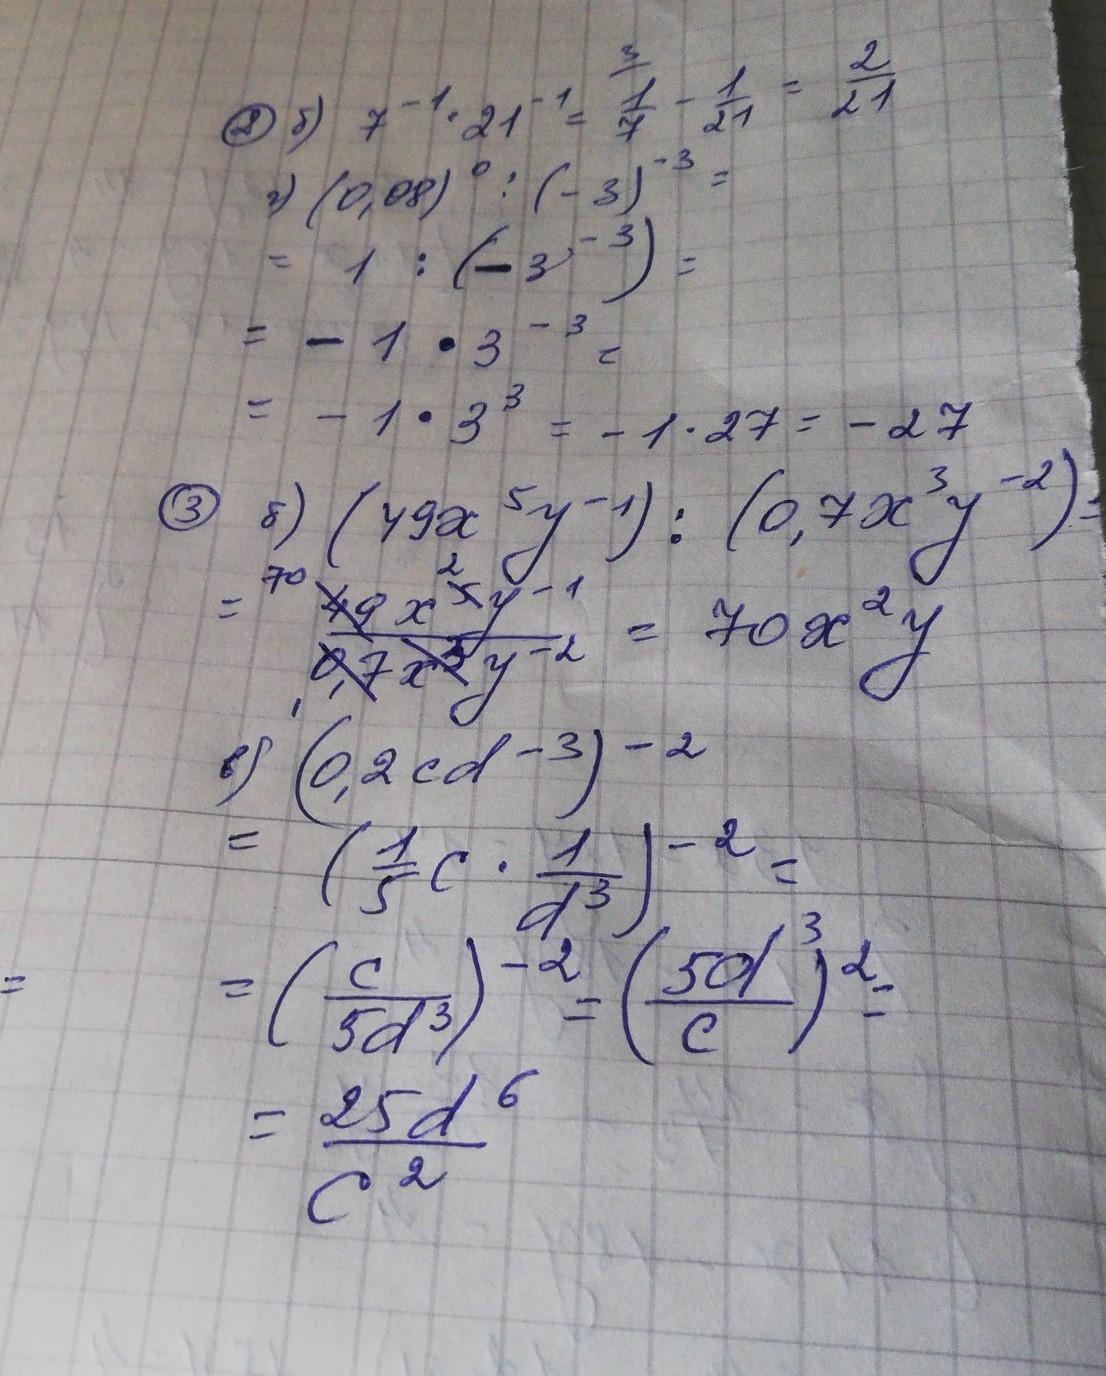 ② б) 7⁻¹ · 21⁻¹ = ³⁄ 1/7 - 1/21 = 2/21
г) (0,08)⁰ : (-3)⁻³ =
= 1 : (-3⁻³) =
= - 1 · 3⁻³ =
= - 1 · 3³ = -1 · 27 = -27
③ б) (49x⁵y⁻¹) : (0,7x³y⁻²) =
= 70 49x² ⁵y⁻¹ / 0,7x³y⁻² = 70x²y
в) (0,2cd⁻³)⁻²
= (1/5 c · 1/d³)⁻² =
= = (c/5d³)⁻² = (5d³/c)² =
= 25d⁶/c²